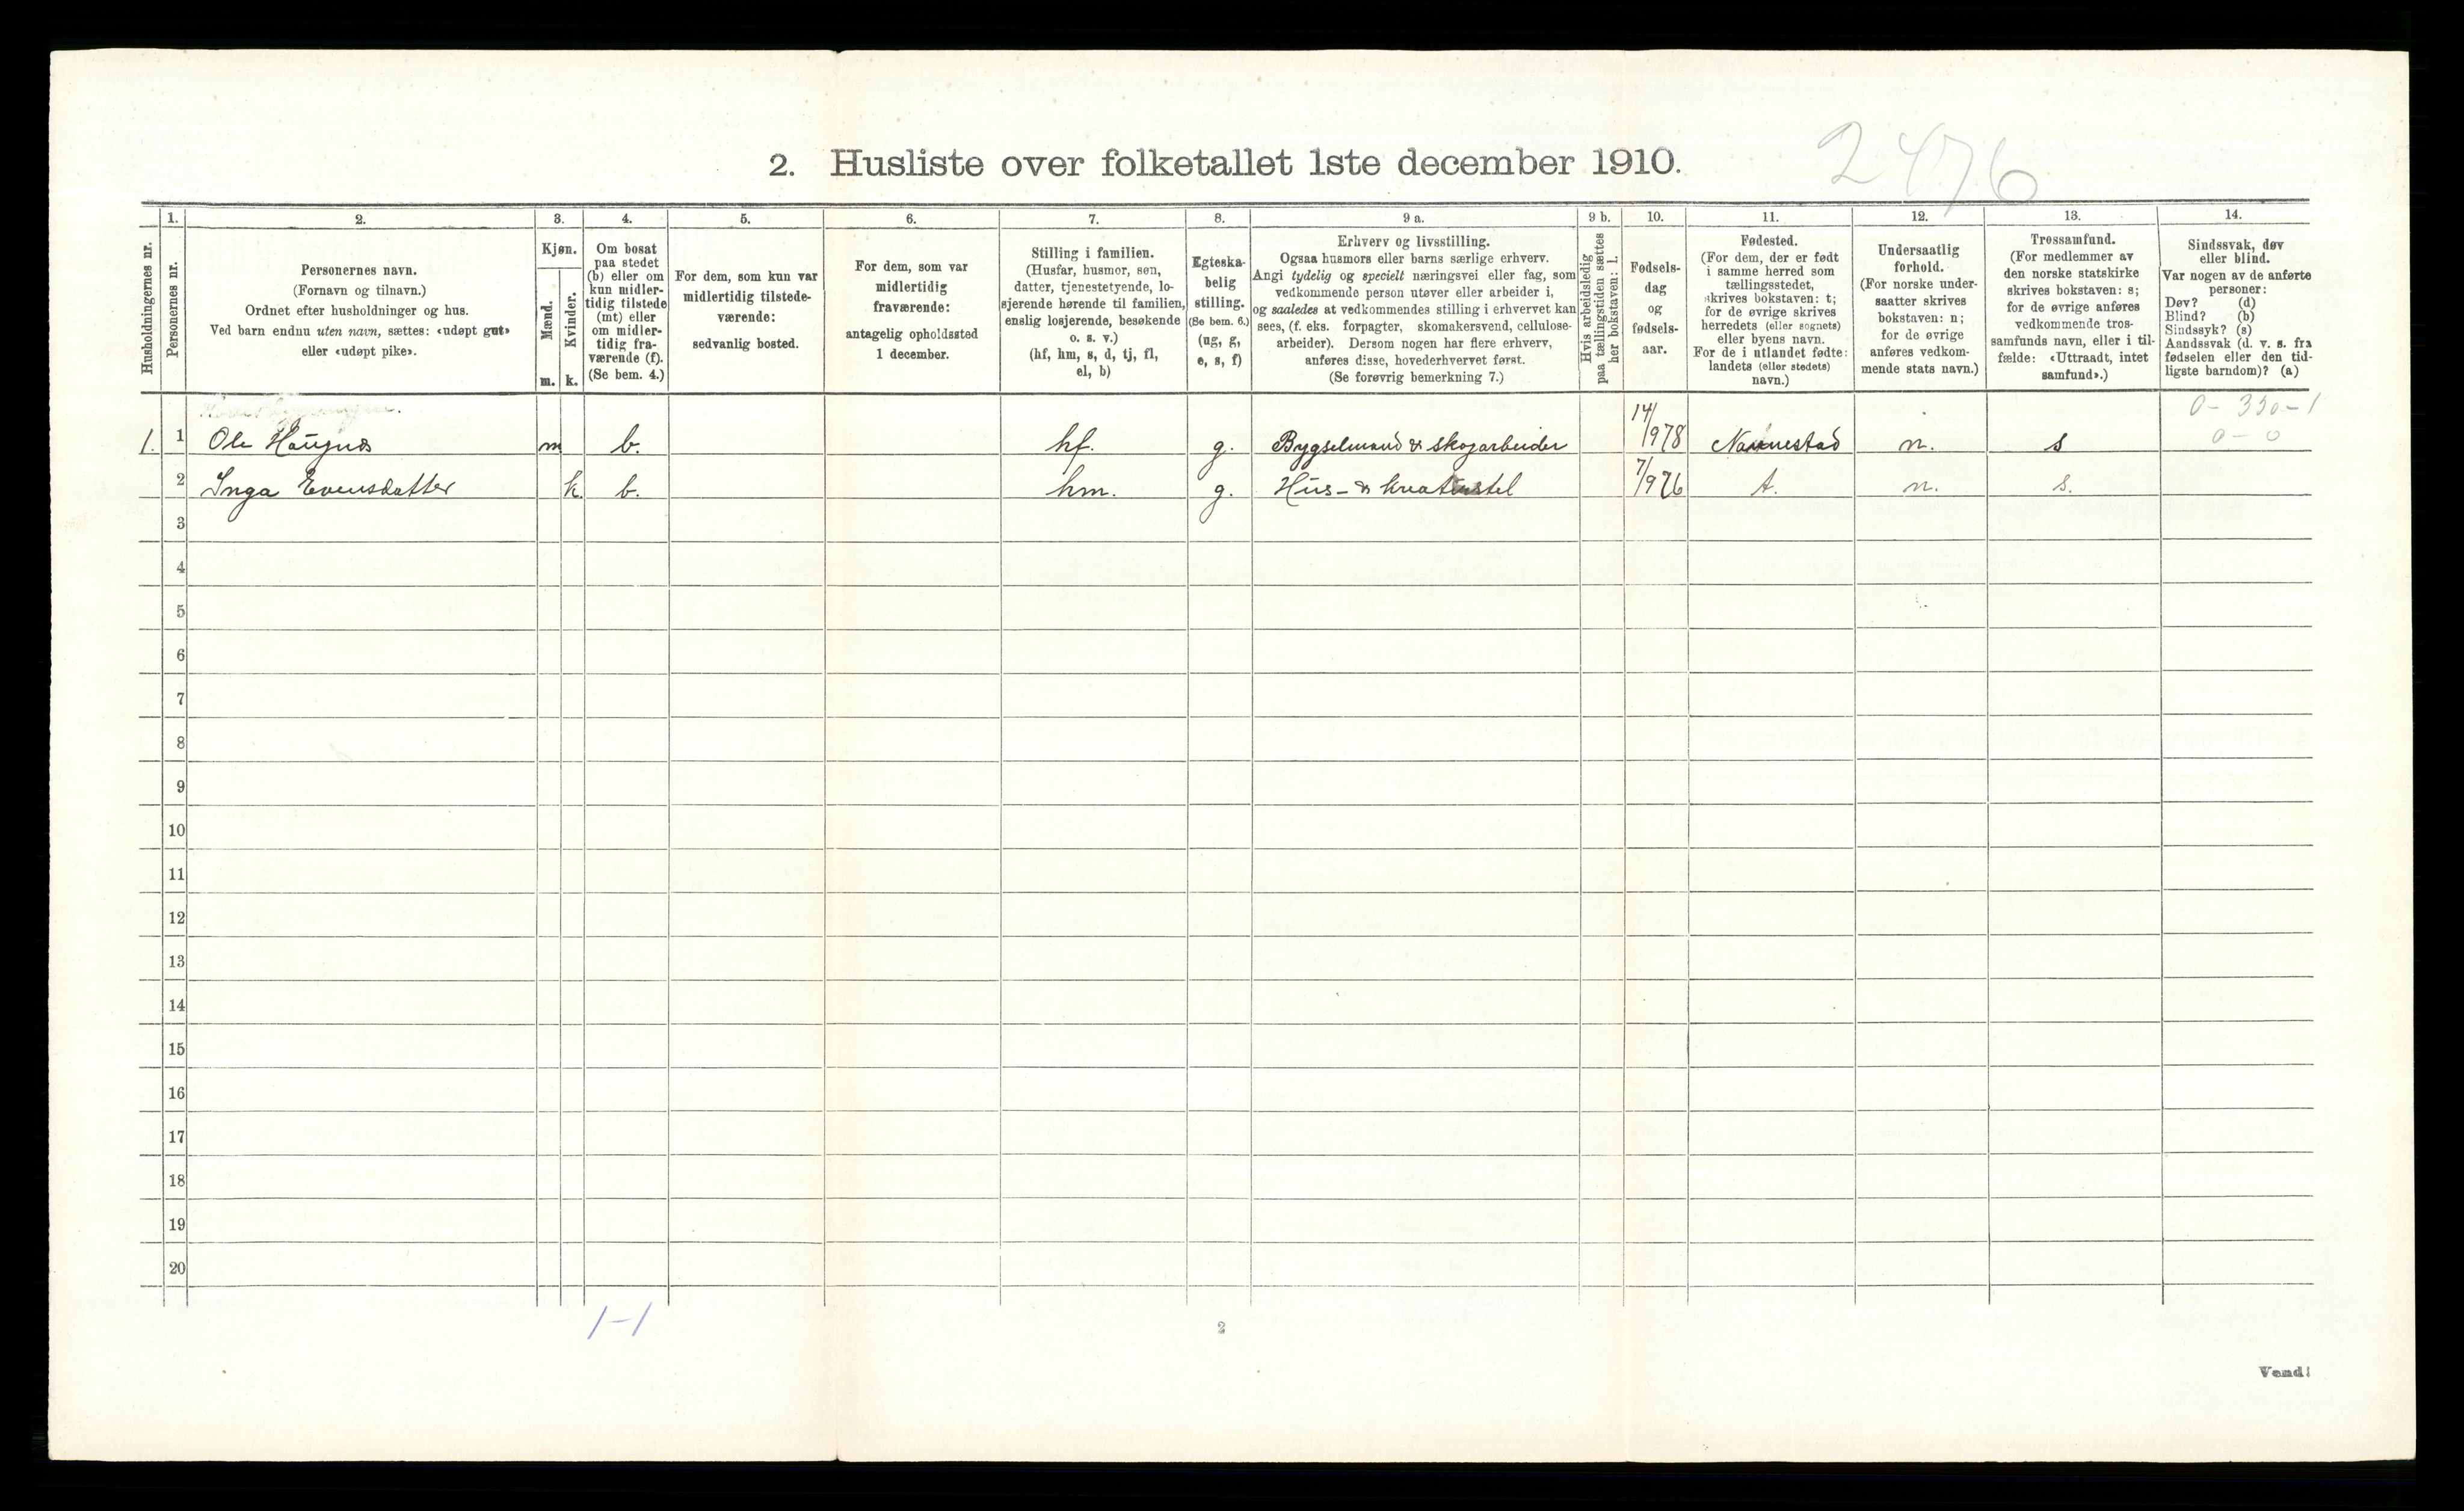 2476
2. Husliste over folketallet 1ste december 1910.
Husholdningernes nr.
1.
Personernes nr.
2.
Personernes navn.
(Fornavn og tilnavn.)
Ordnet efter husholdninger og hus.
Ved barn endnu uten navn, sættes: «udøpt gut»
eller «udøpt pike».
3.
Kjøn.
Mænd.
m.
Kvinder.
k.
4.
Om bosat
paa stedet
(b) eller om
kun midler-
tidig tilstede
(mt) eller
om midler-
tidig fra-
værende (f).
(Se bem. 4.)
5.
For dem, som kun var
midlertidig tilstede-
værende:
sedvanlig bosted.
6.
For dem, som var
midlertidig
fraværende:
antagelig opholdssted
1 december.
7.
Stilling i familien.
(Husfar, husmor, søn,
datter, tjenestetyende, lo-
sjerende hørende til familien,
enslig losjerende, besøkende
o. s. v.)
(hf, hm, s, d, tj, fl,
el, b)
8.
Egteska-
belig
stilling.
(Se bem. 6.)
(ug, g,
e, s, f)
9 a.
Erhverv og livsstilling.
Ogsaa husmors eller barns særlige erhverv.
Angi tydelig og specielt næringsvei eller fag, som
vedkommende person utøver eller arbeider i,
og saaledes at vedkommendes stilling i erhvervet kan
sees, (f. eks. forpagter, skomakersvend, cellulose-
arbeider). Dersom nogen har flere erhverv,
anføres disse, hovederhvervet først.
(Se forøvrig bemerkning 7.)
9 b.
Hvis arbeidsledig
paa tællingstiden sættes
her bokstaven: l.
10.
Fødsels-
dag
og
fødsels-
aar.
11.
Fødested.
(For dem, der er født
i samme herred som
tællingsstedet,
skrives bokstaven: t;
for de øvrige skrives
herredets (eller sognets)
eller byens navn.
For de i utlandet fødte:
landets (eller stedets)
navn.)
12.
Undersaatlig
forhold.
(For norske under-
saatter skrives
bokstaven: n;
for de øvrige
anføres vedkom-
mende stats navn.)
13.
Trossamfund.
(For medlemmer av
den norske statskirke
skrives bokstaven: s;
for de øvrige anføres
vedkommende tros-
samfunds navn, eller i til-
fælde: «Uttraadt, intet
samfund».)
14.
Sindssvak, døv
eller blind.
Var nogen av de anførte
personer:
Døv? (d)
Blind? (b)
Sindssyk? (s)
Aandssvak (d. v. s. fra
fødselen eller den tid-
ligste barndom)? (a)
0 - 330 - 1
0 - 0
1. 1 Ole Haugnes m b. hf. g. Bygselmand & skogarbeider 14/1978 Nannestad n. s
2 Inga Evensdatter k. b. hm. g. Hus- & kreaturstel 7/976 t. n. s.
3
4
5
6
7
8
9
10
11
12
13
14
15
16
17
18
19
20
1-1
2
Vend!